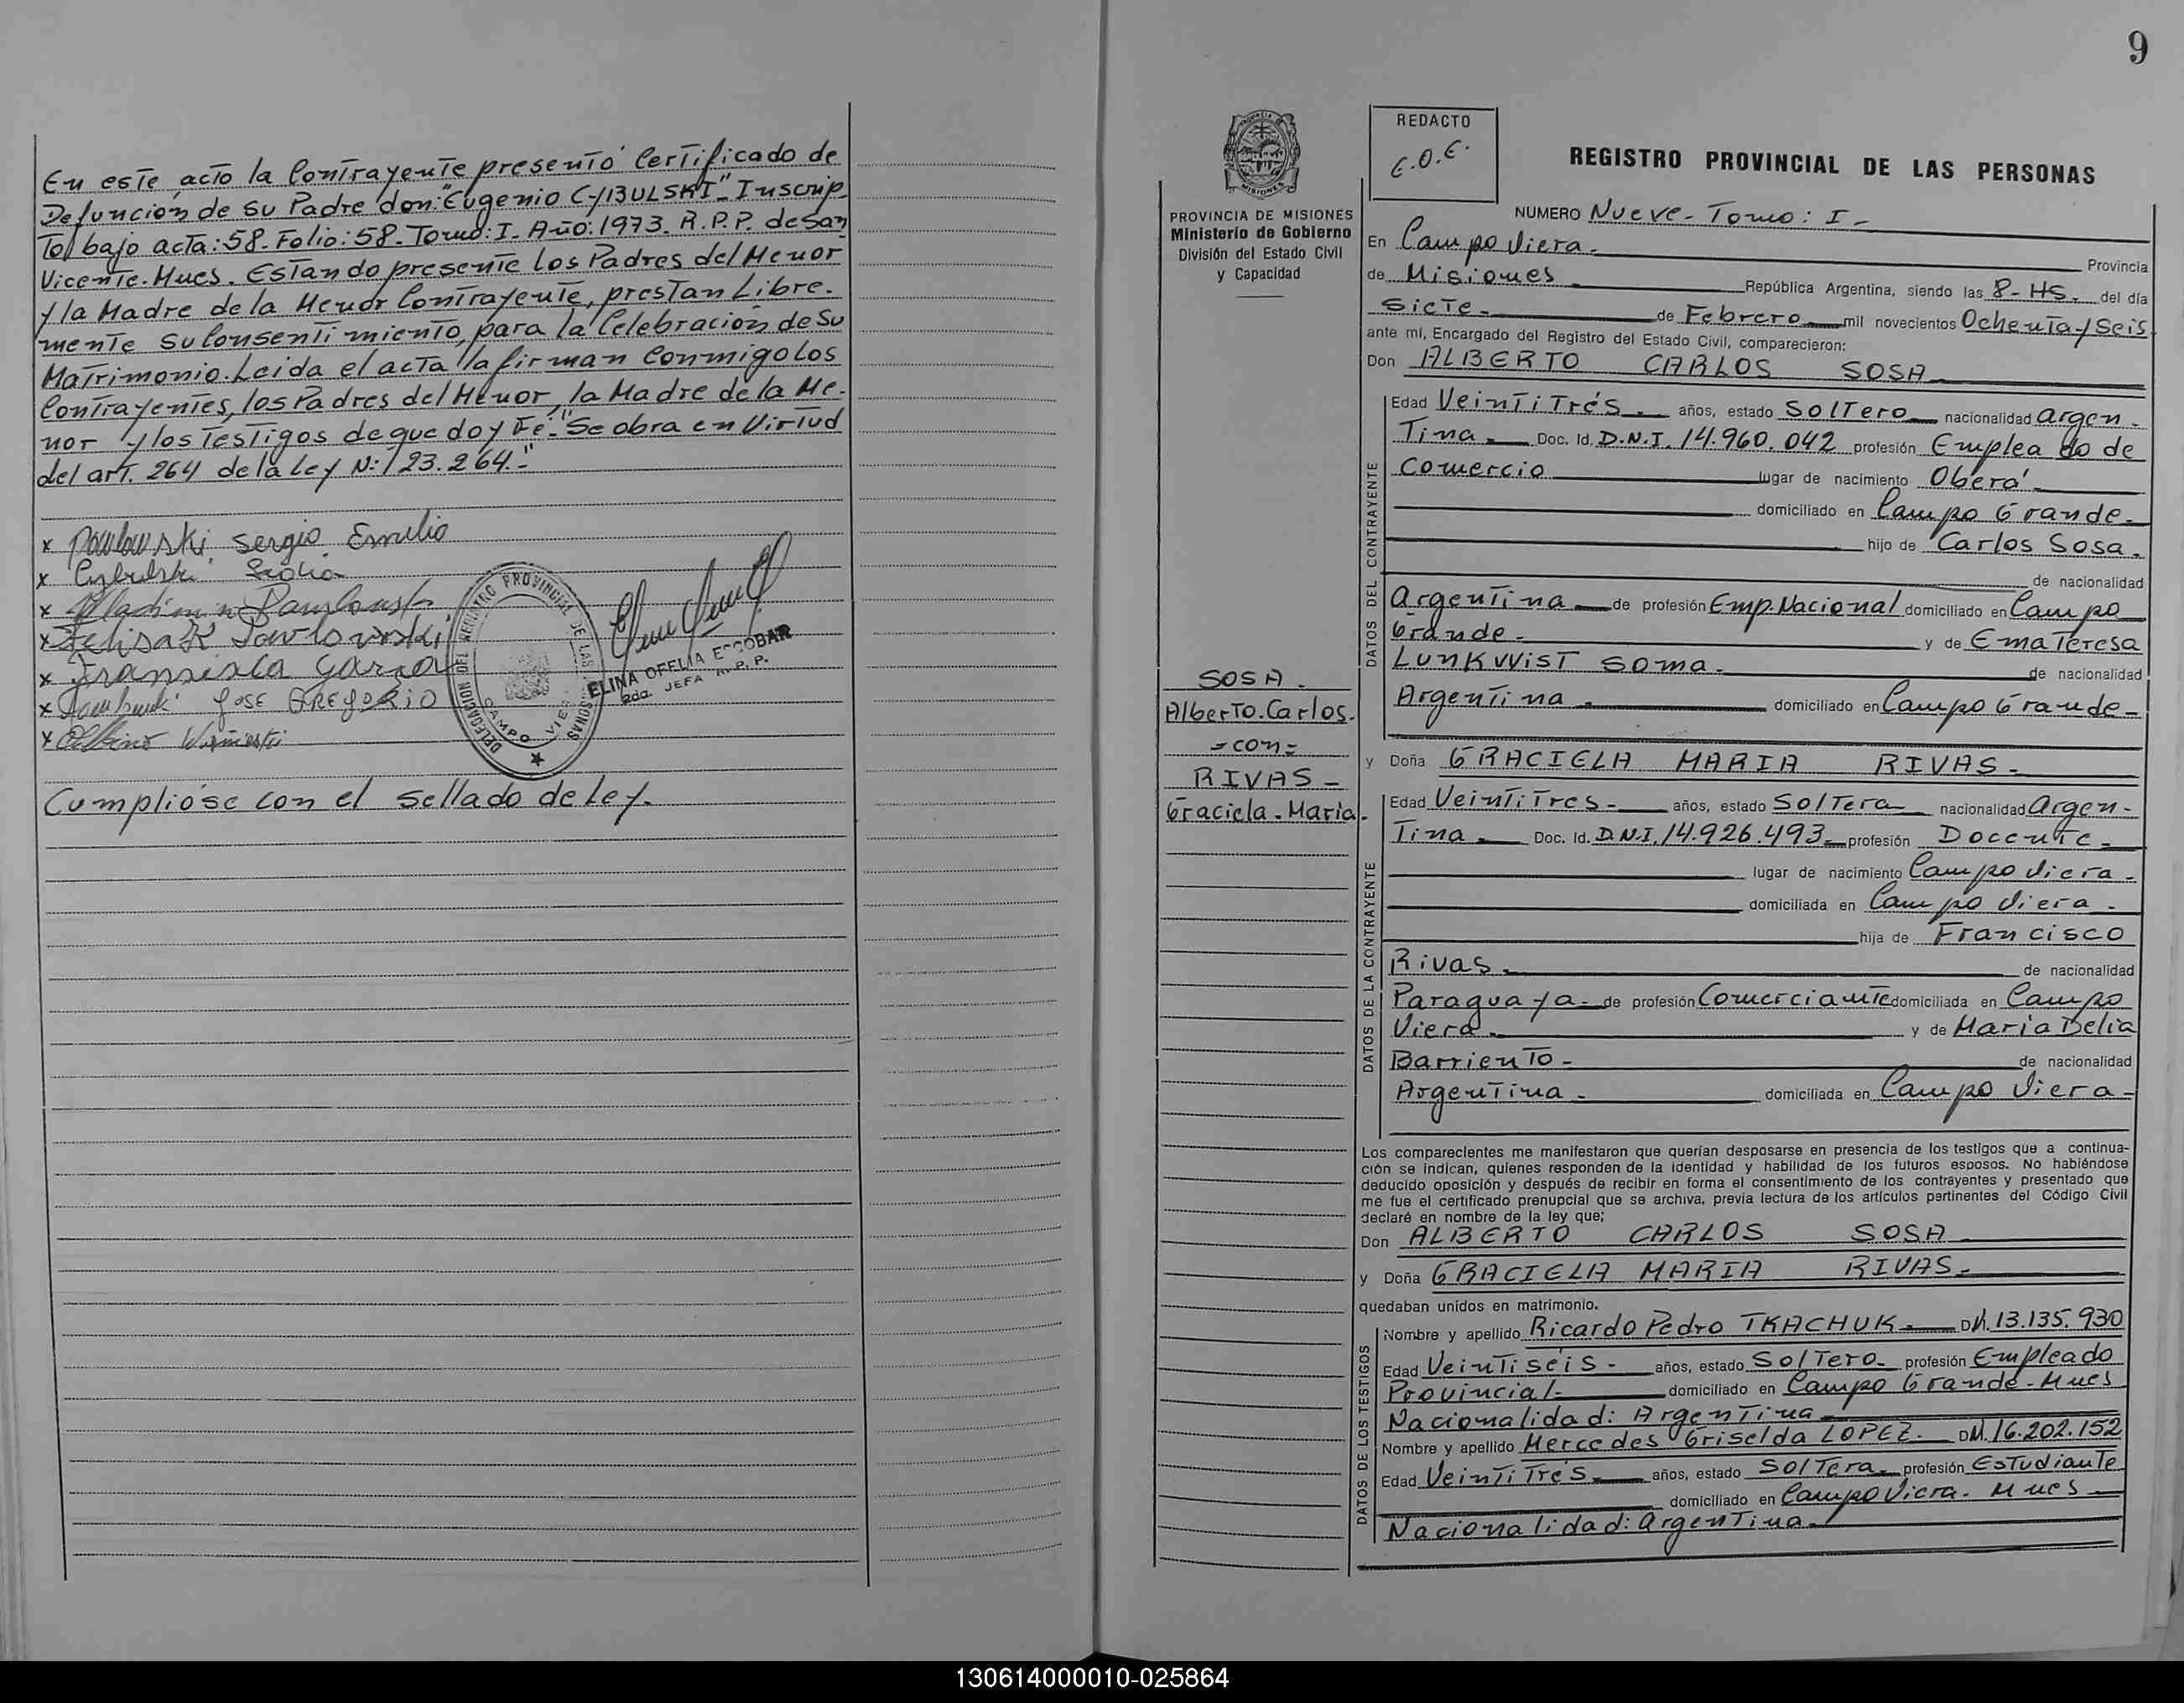 En este acto la Contrayente presentó Certificado de
Defunción de su Padre don: "Eugenio CYBULSKI" Inscrip-
to bajo acta: 58. Folio: 58. Tomo: I. Año: 1973. R.P.P. de San
Vicente. Mnes. Estando presente los Padres del Menor
y la Madre de la Menor Contrayente, prestan Libre-
mente su Consentimiento, para la Celebración de su
Matrimonio. Leida el acta la firman Conmigo los
Contrayentes, los Padres del Menor, la Madre de la Me-
nor y los Testigos de que doy Fé. "Se obra en Virtud
del art. 264 de la Ley Nº: 23.264."
x Pawlowski Sergio Emilio
x Cybulski
x Pawlowski
x Felisa K Pawlowski
x Fransisca Garza
x Jose GREgoRio
x Albino
DELEGACION DEL REGISTRO PROVINCIAL DE LAS PERSONAS
CAMPO VIERA
ELINA OFELIA ESCOBAR
2da. JEFA R.P.P.
Cumplióse con el sellado de Ley.
9
PROVINCIA DE MISIONES
Ministerio de Gobierno
División del Estado Civil
y Capacidad
SOSA.
Alberto. Carlos.
= con =
RIVAS -
Graciela. Maria.
REDACTO
E.O.E.
REGISTRO PROVINCIAL DE LAS PERSONAS
NUMERO Nueve - Tomo: I -
En Campo Viera. Provincia
de Misiones República Argentina, siendo las 8- HS. del día
Siete de Febrero mil novecientos Ochenta y Seis
ante mí, Encargado del Registro del Estado Civil, comparecieron:
Don ALBERTO CARLOS SOSA
DATOS DEL CONTRAYENTE
Edad Veintitrés. años, estado Soltero nacionalidad argen-
tina. Doc. Id. D.N.I. 14.960.042 profesión Empleado de
Comercio lugar de nacimiento Oberá
domiciliado en Campo Grande-
hijo de Carlos Sosa.
de nacionalidad
Argentina de profesión Emp. Nacional domiciliado en Campo
Grande. y de Ema Teresa
LUNKVVIST Soma. de nacionalidad
Argentina domiciliado en Campo Grande-
y Doña GRACIELA MARIA RIVAS -
DATOS DE LA CONTRAYENTE
Edad Veintitres- años, estado Soltera nacionalidad Argen-
tina. Doc. Id. D.N.I. 14.926.493 profesión Docente
lugar de nacimiento Campo Viera.
domiciliada en Campo Viera.
hija de Francisco
Rivas. de nacionalidad
Paraguaya. de profesión Comerciante domiciliada en Campo
Viera. y de Maria Delia
Barriento- de nacionalidad
Argentina. domiciliada en Campo Viera-
Los comparecientes me manifestaron que querían desposarse en presencia de los testigos que a continua-
ción se indican, quienes responden de la identidad y habilidad de los futuros esposos. No habiéndose
deducido oposición y después de recibir en forma el consentimiento de los contrayentes y presentado que
me fue el certificado prenupcial que se archiva, previa lectura de los artículos pertinentes del Código Civil
declaré en nombre de la ley que;
Don ALBERTO CARLOS SOSA
y Doña GRACIELA MARIA RIVAS.
quedaban unidos en matrimonio.
DATOS DE LOS TESTIGOS
Nombre y apellido Ricardo Pedro TKACHUK. DNI. 13.135.930
Edad Veintiseis- años, estado Soltero. profesión Empleado
Provincial- domiciliado en Campo Grande - Mnes
Nacionalidad: Argentina
Nombre y apellido Mercedes Griselda LOPEZ. DNI. 16.202.152
Edad Veintitrés. años, estado Soltera. profesión Estudiante
domiciliado en Campo Viera. Mnes
Nacionalidad: argentina.
130614000010-025864